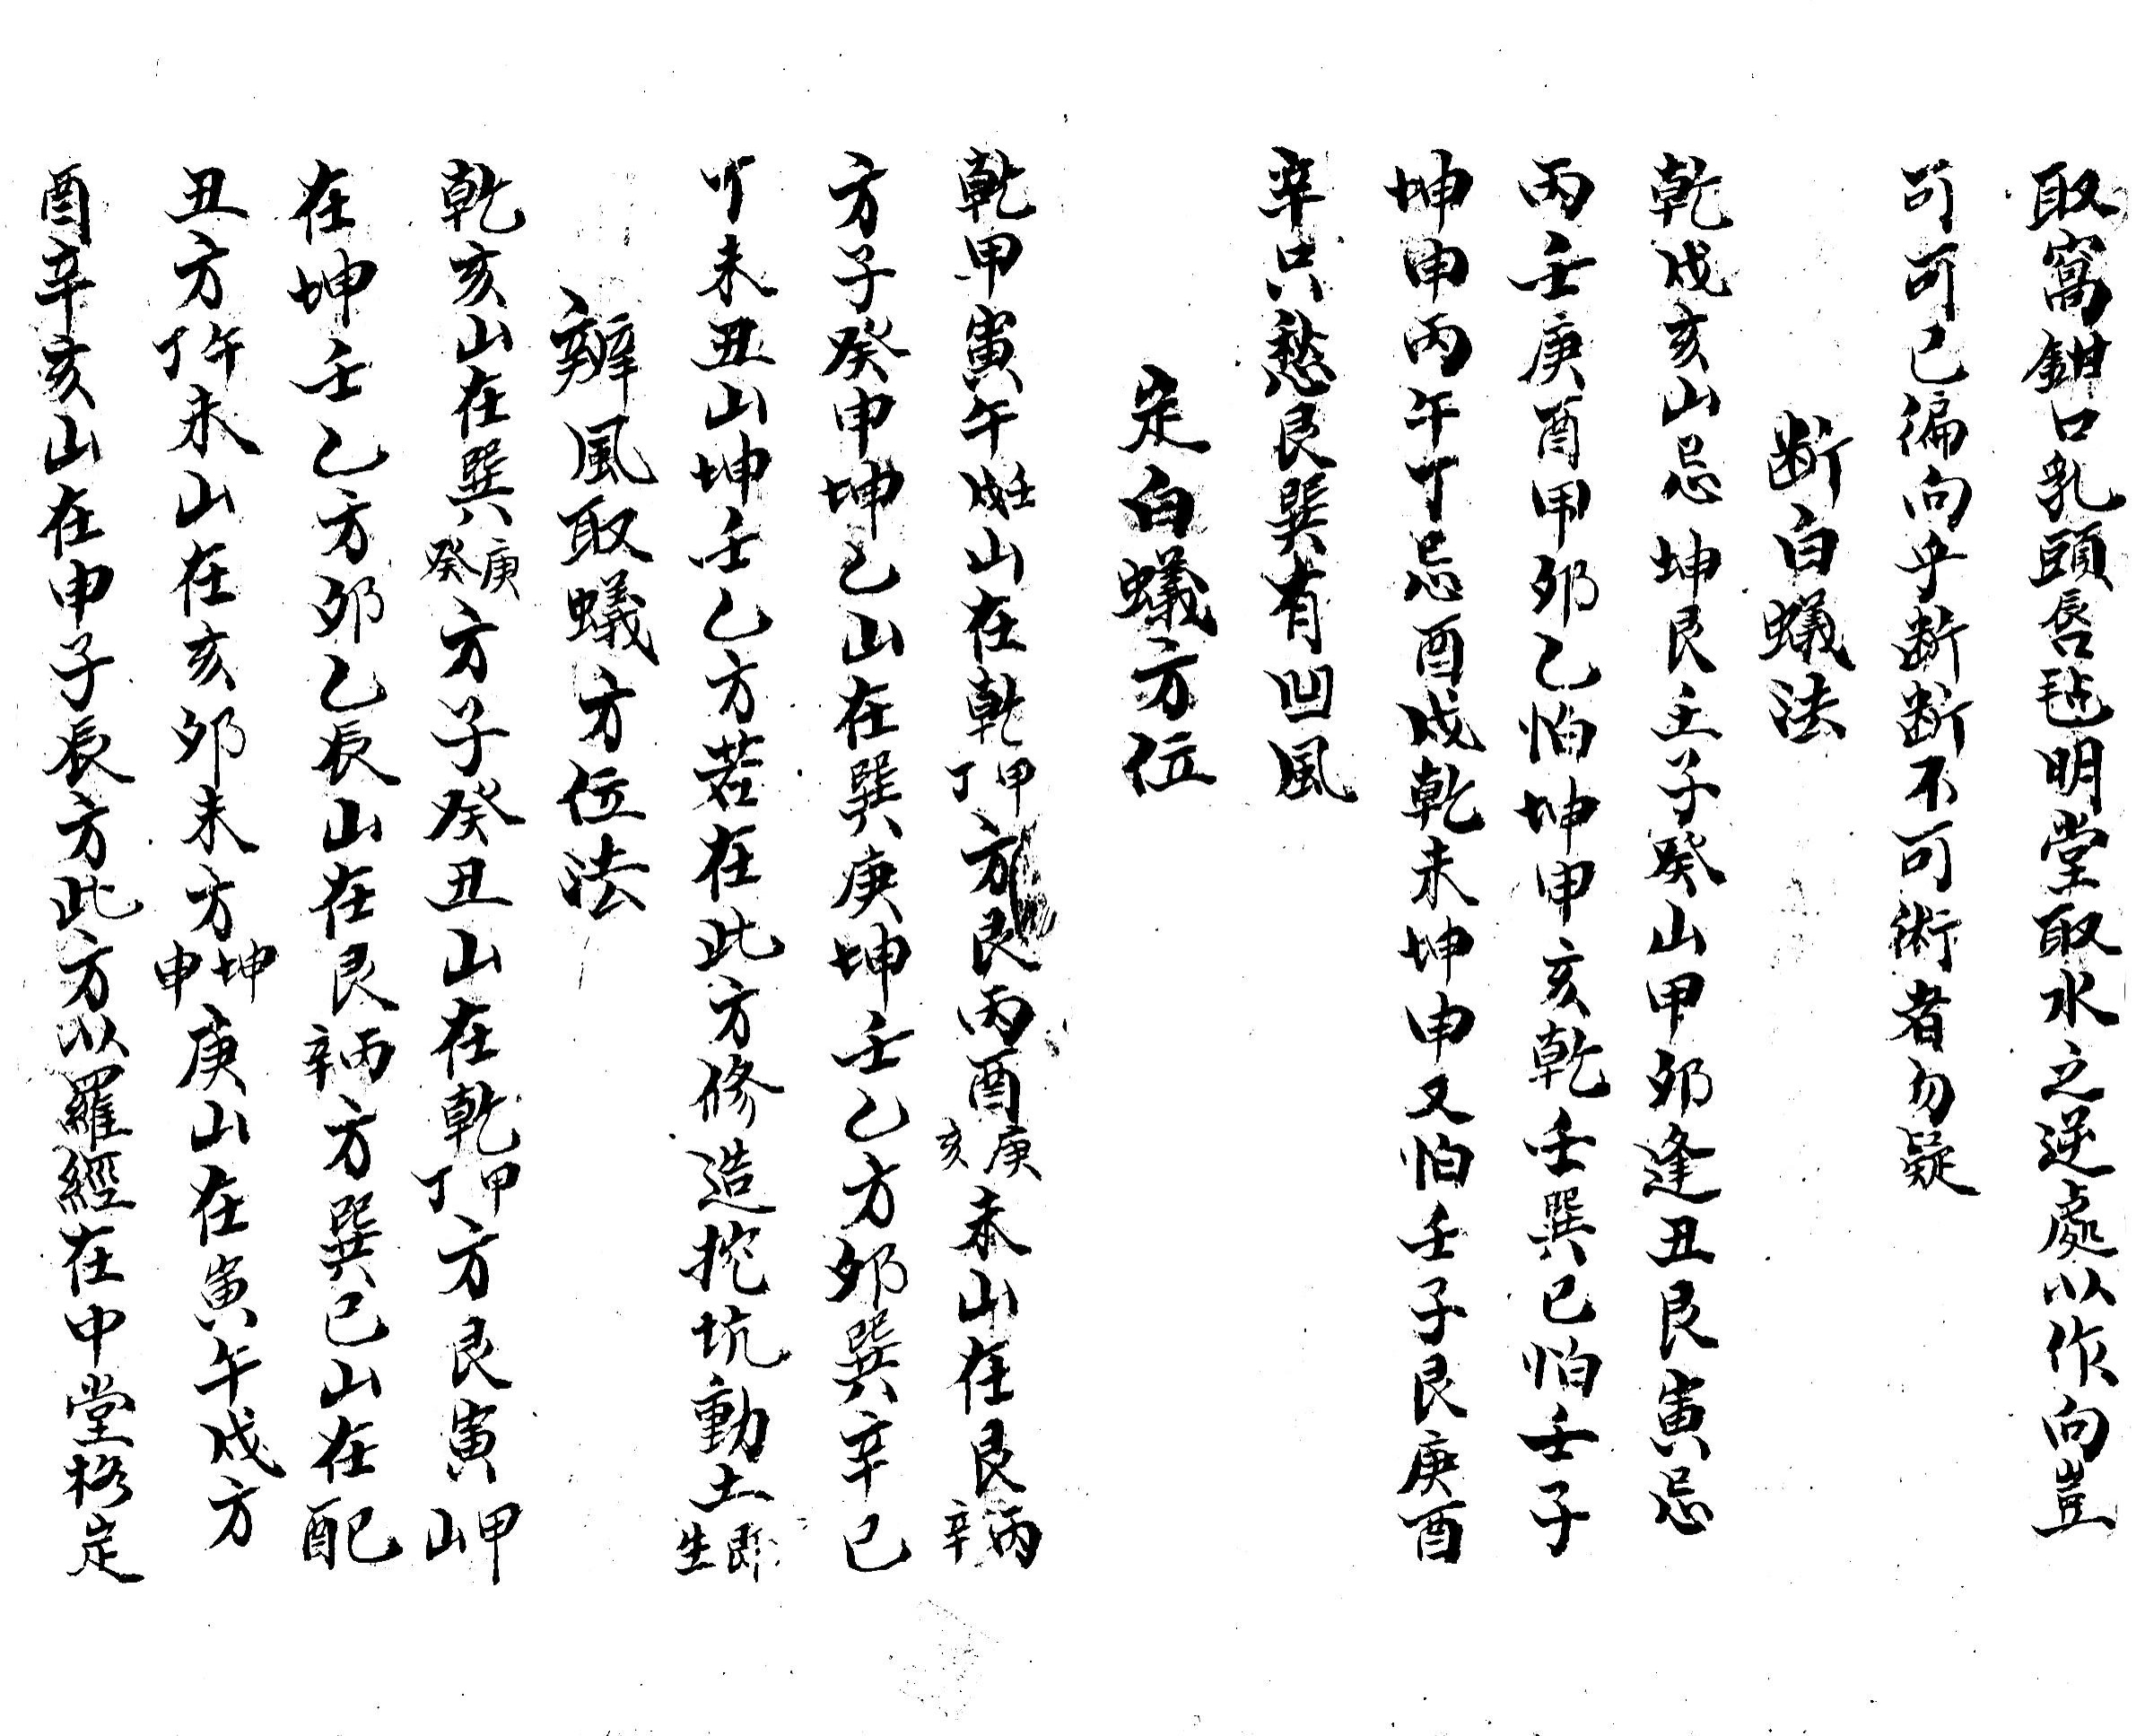 取窩鉗口乳頭唇毡明堂取水之逆處以作向豈
可可已偏向乎断断不可術者勿疑
断白蟻法
乾戌亥山忌坤艮壬子癸山甲夘逢丑艮寅忌
丙壬庚酉甲夘乙怕坤申亥乾壬巽巳怕壬子
坤申丙午丁忌酉戌乾未坤申又怕壬子艮庚酉
辛只愁艮巽有凹風
定白蟻方位
乾甲寅午戌壬山在乾甲丁方艮丙酉庚亥未山在艮丙辛
方子癸申坤乙山在巽庚坤壬乙方夘巽辛巳
丁未丑山坤壬乙方若在此方修造挖坑動土即生
辦風取蟻方位法
乾亥山在巽庚癸方子癸丑山在乾甲丁方艮寅甲山
在坤壬乙方夘乙辰山在艮丙辛方巽巳山在巳酉
丑方午丁未山在亥夘未方坤申庚山在寅午戌方
酉辛亥山在申子辰方此方以羅經在中堂格定